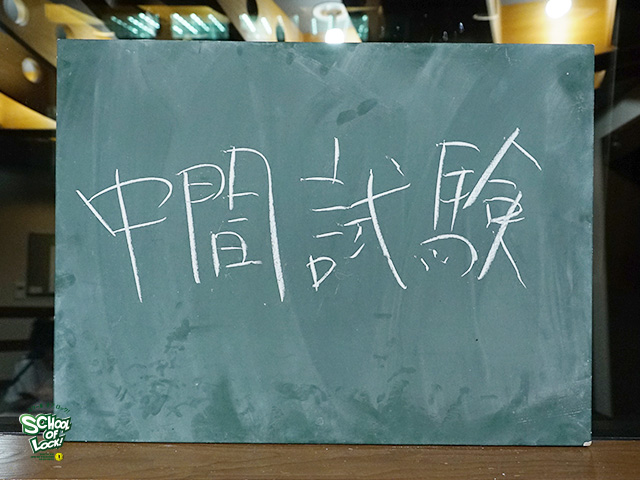 中間試験
SCHOOL
OF
LOCK!